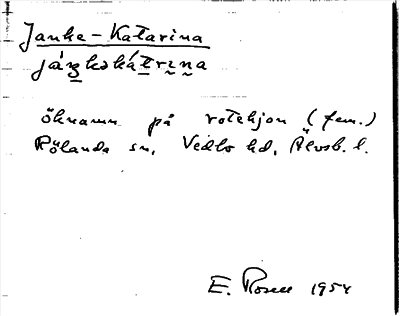 Janke-Katarina
jáŋkəkátrina
öknamn på rotehjon (fem.)
Rölanda sn, Vedbo hd, Älvsb. l.
E. Rosell 1954